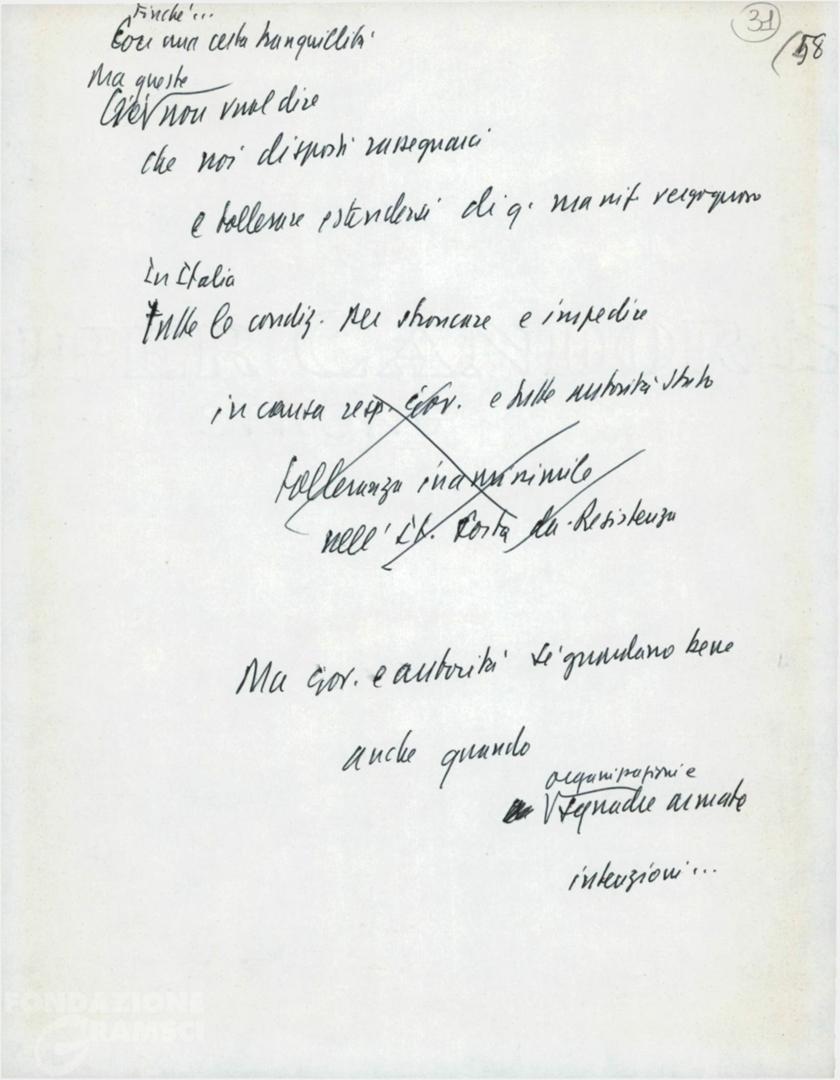 31
58
Finché...
Con una certa tranquillità
Ma queste
Ciò non vuol dire
che noi disposti rassegnarci
e tollerare estendersi di q. manif. vergognose
in Italia
tutte le condiz. per stroncare e impedire
in causa resp. Gov. e tutte autorità Stato
tolleranza inammissibile
nell'It. sorta da Resistenza
Ma Gov. e autorità si guardano bene
anche quando
organizzazioni e
squadre armate
intenzioni...
FONDAZIONE
GRAMSCI